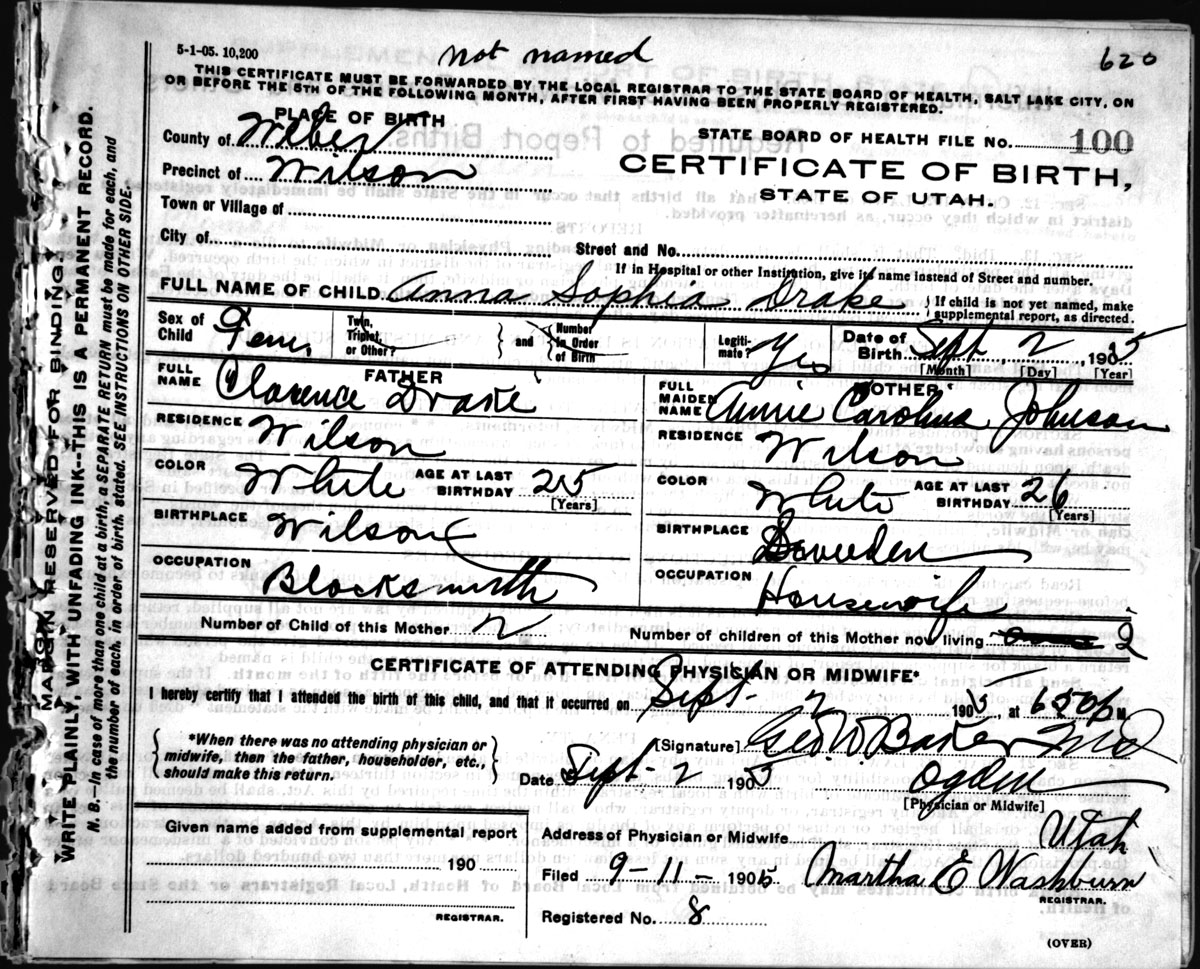 5-1-05. 10,200
not named
620
THIS CERTIFICATE MUST BE FORWARDED BY THE LOCAL REGISTRAR TO THE STATE BOARD OF HEALTH, SALT LAKE CITY, ON
OR BEFORE THE 5TH OF THE FOLLOWING MONTH, AFTER FIRST HAVING BEEN PROPERLY REGISTERED.
PLACE OF BIRTH
County of Weber
STATE BOARD OF HEALTH FILE No. 100
Precinct of Wilson
CERTIFICATE OF BIRTH,
STATE OF UTAH.
Town or Village of
City of Street and No.
If in Hospital or other Institution, give its name instead of Street and number.
FULL NAME OF CHILD Anna Sophia Drake { If child is not yet named, make
supplemental report, as directed.
Sex of
Child Fem.
Twin,
Triplet,
or Other? } and { Number
in Order
of Birth
Legiti-
mate? Yes
Date of
Birth Sept 2, 1905
[Month] [Day] [Year]
FATHER
FULL
NAME Clarence Drake
MOTHER
FULL
MAIDEN
NAME Annie Carolina Johnson
RESIDENCE Wilson
RESIDENCE Wilson
COLOR White AGE AT LAST
BIRTHDAY 25
[Years]
COLOR White AGE AT LAST
BIRTHDAY 26
[Years]
BIRTHPLACE Wilson
BIRTHPLACE Sweeden
OCCUPATION Blacksmith
OCCUPATION Housewife
Number of Child of this Mother 2 Number of children of this Mother now living 2
CERTIFICATE OF ATTENDING PHYSICIAN OR MIDWIFE*
I hereby certify that I attended the birth of this child, and that it occurred on Sept. 2 1905, at 6 50 P M.
{ *When there was no attending physician or
midwife, then the father, householder, etc.,
should make this return. }
[Signature] Geo W Baker Md
Date Sept - 2 1905 Ogden
[Physician or Midwife]
Given name added from supplemental report
190
REGISTRAR.
Address of Physician or Midwife Utah
Filed 9-11- 1905 Martha E Washburn
REGISTRAR.
Registered No. 8
(OVER)
MARGIN RESERVED FOR BINDING
WRITE PLAINLY, WITH UNFADING INK--THIS IS A PERMANENT RECORD.
N. B.--In case of more than one child at a birth, a SEPARATE RETURN must be made for each, and
the number of each, in order of birth stated. SEE INSTRUCTIONS ON OTHER SIDE.